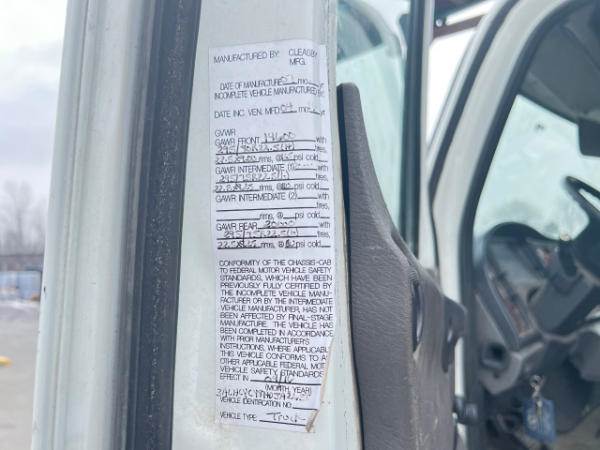 MANUFACTURED BY: CLEASBY
MFG.
DATE OF MANUFACTURE mo.
INCOMPLETE VEHICLE MANUFACTURED BY:
DATE INC. VEH. MFD 04 mo.
GVWR
GAWR FRONT 14600 with
tires,
rims, @ psi cold
GAWR INTERMEDIATE (1) with
295/75R22.5(G) tires,
22.5X8.25 rims, @ psi cold
GAWR INTERMEDIATE (2) with
tires,
rims, @ psi cold
GAWR REAR with
tires,
22.5X8.25 rims, @ psi cold
CONFORMITY OF THE CHASSIS-CAB
TO FEDERAL MOTOR VEHICLE SAFETY
STANDARDS, WHICH HAVE BEEN
PREVIOUSLY FULLY CERTIFIED BY
THE INCOMPLETE VEHICLE MANU-
FACTURER OR BY THE INTERMEDIATE
VEHICLE MANUFACTURER, HAS NOT
BEEN AFFECTED BY FINAL-STAGE
MANUFACTURE. THE VEHICLE HAS
BEEN COMPLETED IN ACCORDANCE
WITH PRIOR MANUFACTURER'S
INSTRUCTIONS, WHERE APPLICABLE
THIS VEHICLE CONFORMS TO A
OTHER APPLICABLE FEDERAL MOT
VEHICLE SAFETY STANDARDS
EFFECT IN
(MONTH, YEAR)
VEHICLE IDENTIFICATION NO.
VEHICLE TYPE Truck